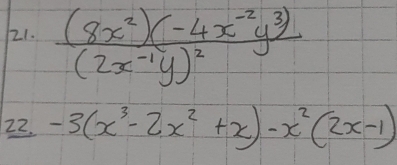 21. (8x²)(-4x⁻²y³) / (2x⁻¹y)²
22. -3(x³-2x²+x)-x²(2x-1)